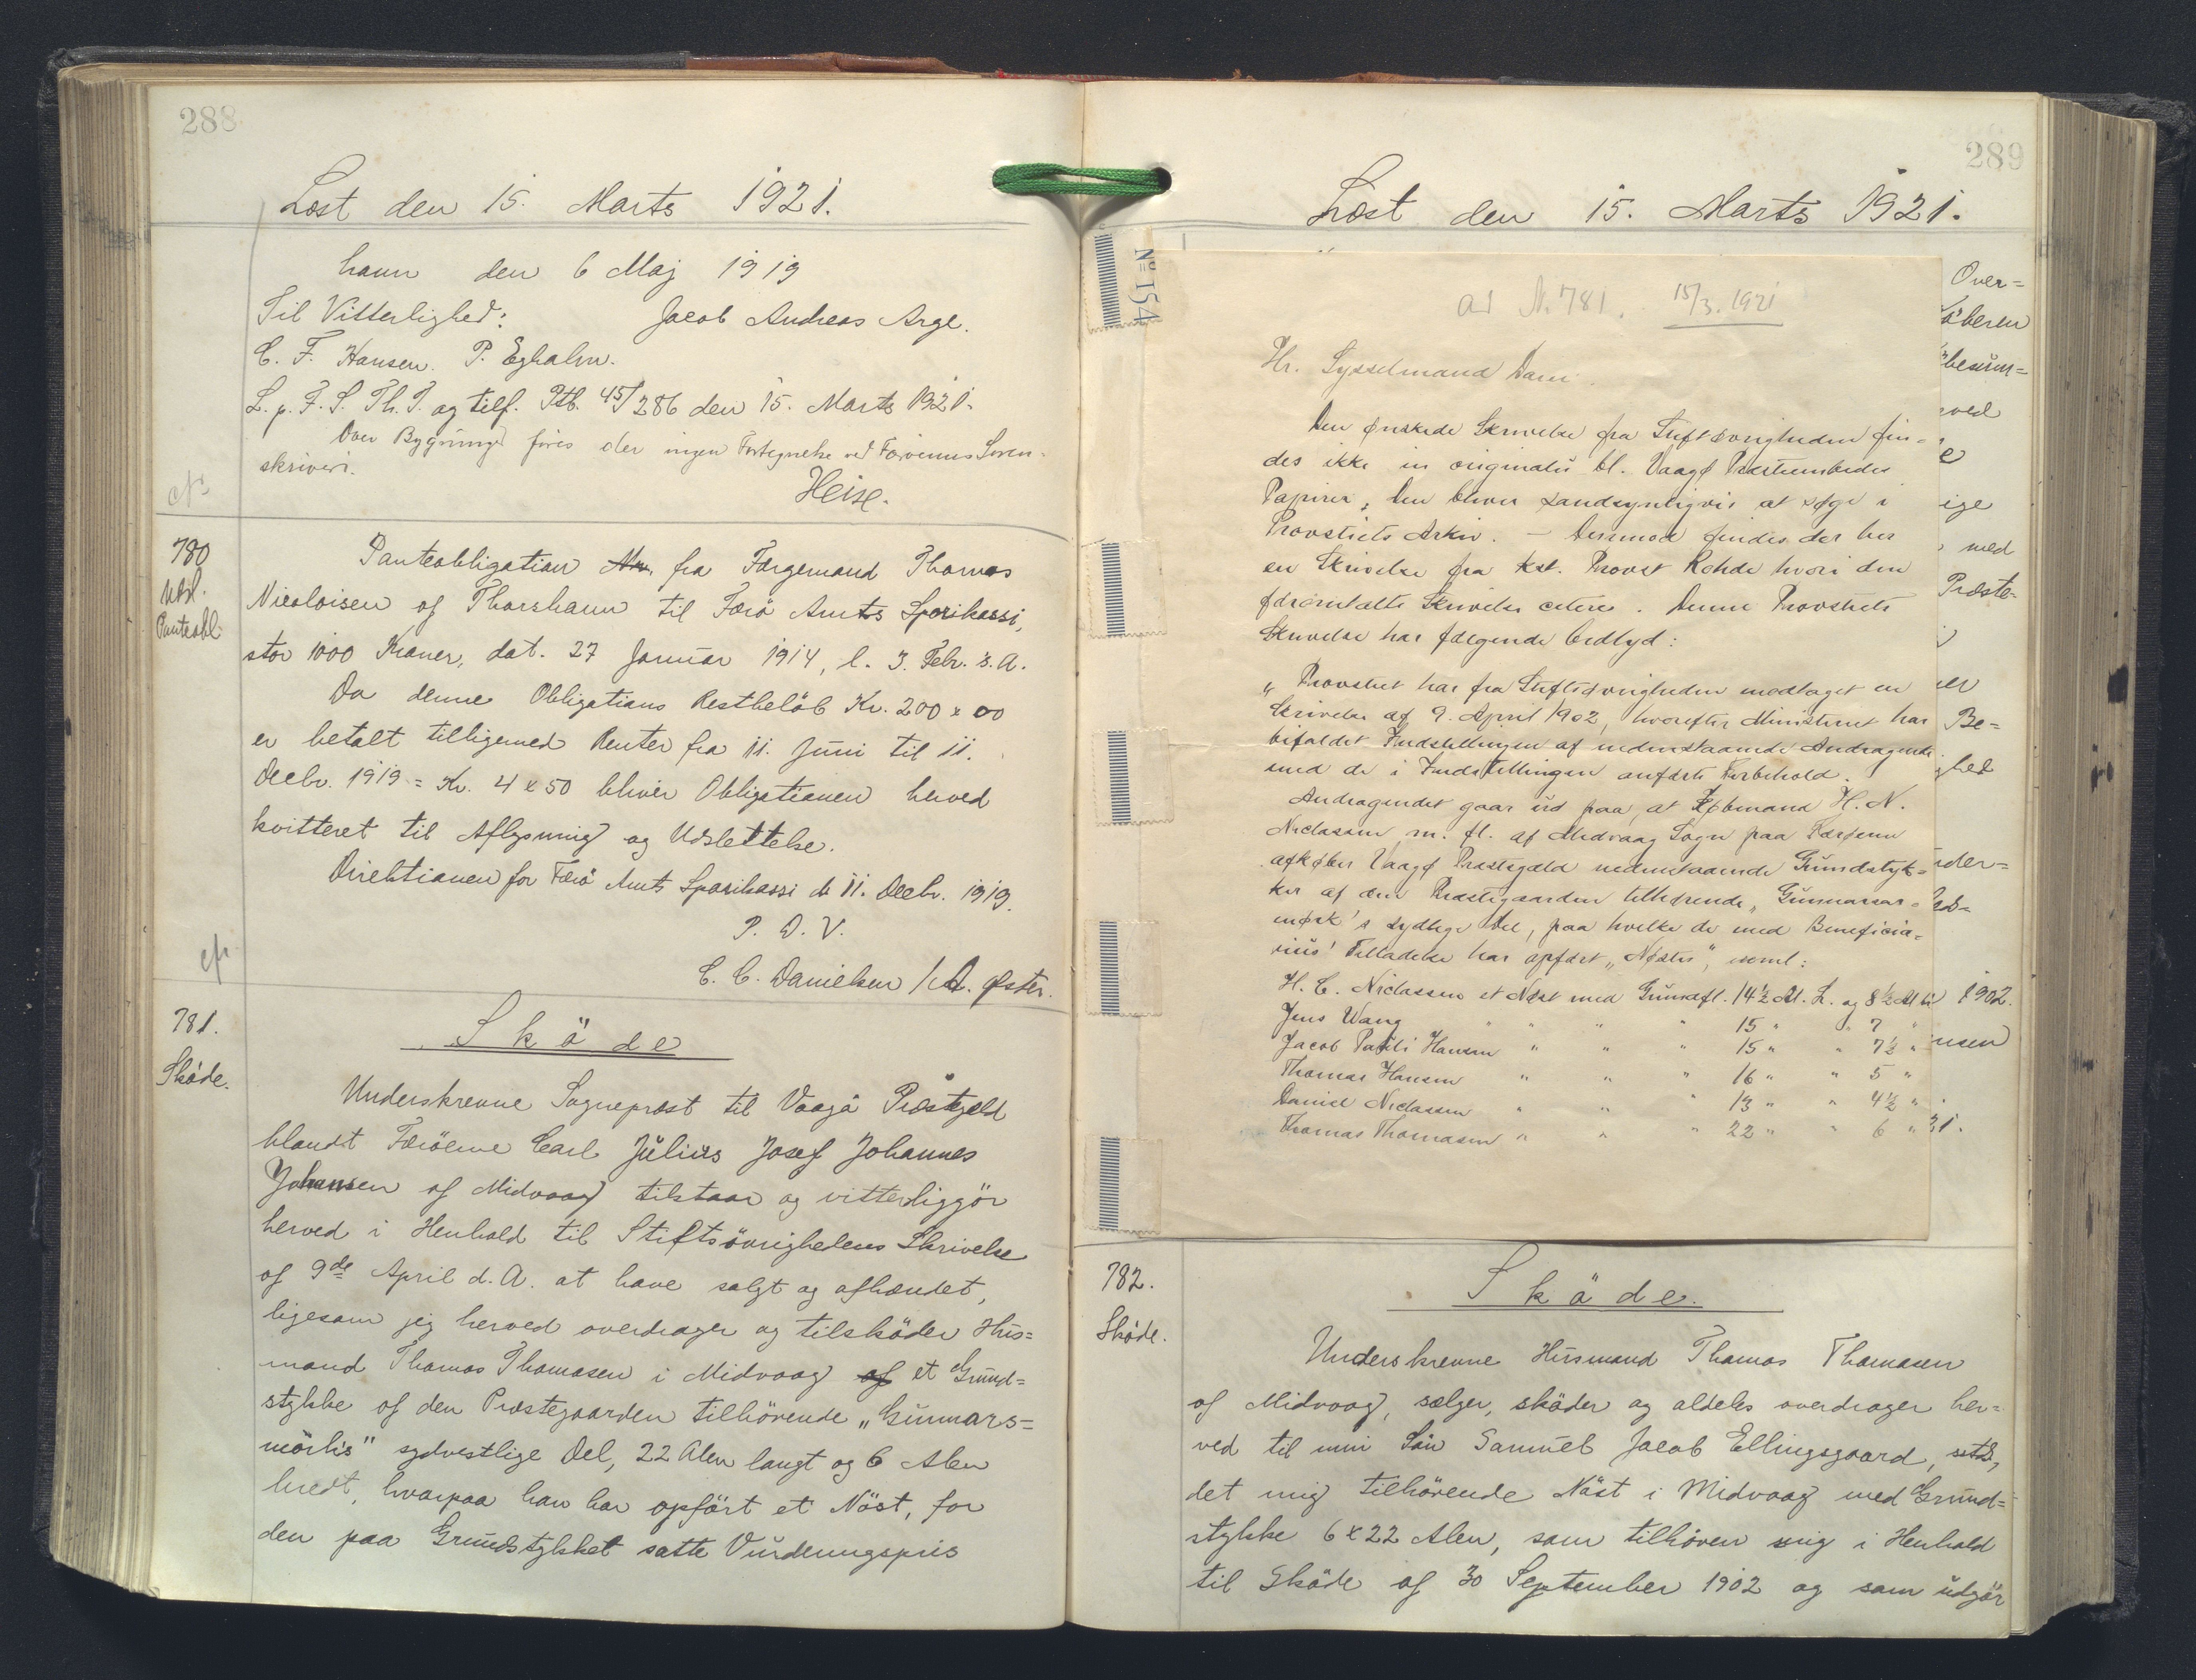 288
Læst den 15. Marts 1921.
havn den 6 Maj 1919
Til Vitterlighed: Jacob Andreas Arge.
C. F. Hansen. P. Egholm.
L. p. F. S. Th. T. og tilf. Ptb. 45/286 den 15. Marts 1921.
Over Bygninger føres der ingen Fortegnelse ved Færøernes Soren-
skriveri.
Heise.
780
Udsl.
Panteobl.
Panteobligation fra Færgemand Thomas
Nicolaisen af Thorshavn til Færö Amts Sparekasse,
stor 1000 Kroner, dat. 27 Januar 1914, l. 3. Febr. s. A.
Da denne Obligations Restbelöb Kr. 200 x 00
er betalt tilligemed Renter fra 11. Juni til 11.
Decbr. 1919 = Kr. 4 x 50 bliver Obligationen herved
kvitteret til Aflysning og Udslettelse.
Direktionen for Færö Amts Sparekasse d. 11. Decbr. 1919.
P. D. V.
C. C. Danielsen / A. Øster.
781.
Sköde.
Sköde
Underskrevne Sognepræst til Vaagö Præstegjeld
blandt Færöerne Carl Július Josef Johannes
Johansen af Midvaag tilstaar og vitterliggör
herved i Henhold til Stiftsövrighedens Skrivelse
af 9de April d. A. at have solgt og afhændet,
ligesom jeg herved overdrager og tilsköder Hus=
mand Thomas Thomasen i Midvaag af et Grund=
stykke af den Præstegaarden tilhörende „Gunnars=
mörks" sydvestlige Del, 22 Alen langt og 6 Alen
bredt, hvorpaa han har opfört et Nöst, for
den paa Grundstykket satte Vurderingspris
289
Læst den 15. Marts 1921.
No 154
ad N. 781. 15/3. 1921
Hr. Sysselmand Dam.
Den ønskede Skrivelse fra Stiftsøvrigheden fin=
des ikke in originali bl. Vaagø Præsteembedes
Papirer; den bliver sandsynligvis at søge i
Provstiets Arkiv. – Derimod findes der her
en Skrivelse fra kst. Provst Rohde hvori den
føromtalte Skrivelse citeres. Denne Provstiets
Skrivelse har følgende Ordlyd:
„Provstiet har fra Stiftsøvrigheden modtaget en
Skrivelse af 9. April 1902, hvorefter Ministeriet har
bifaldet Indstillingen af nedenstaaende Andragende
med de i Indstillingen anførte Forbehold.
Andragendet gaar ud paa, at Købmand H. N.
Niclasen m. fl. af Midvaag Sogn paa Færøerne
afkøber Vaagø Præstegæld nedenstaaende Grundstyk=
ker af den Præstegaarden tilhørende „Gunnarsar=
mørk's sydlige Del, paa hvilke de med Beneficia=
rius' Tilladelse har opført „Nøste", neml:
H. C. Niclassen et Nøst med Grundfl. 14½ Al. L. og 8½ Al B
Jens Wang " " " " 15 " " 7 "
Jacob Pauli Hansen " " " 15 " " 7½ "
Thomas Hansen " " " 16 " " 5 "
Daniel Niclassen " " " 13 " " 4½ "
Thomas Thomasen " " " 22 " " 6 "
Over=
beren
ved
ige
med
Præste-
Be=
ghed
der=
1902.
nsen
21.
782.
Sköde.
Sköde.
Underskrevne Husmand Thomas Thomasen
af Midvaag, sælger, sköder og aldeles overdrager her=
ved til min Sön Samuel Jacob Ellingsgaard, sstds,
det mig tilhörende Nöst i Midvaag med Grund=
stykke 6 x 22 Alen, som tilhörer mig i Henhold
til Sköde af 30 September 1902 og som udgör